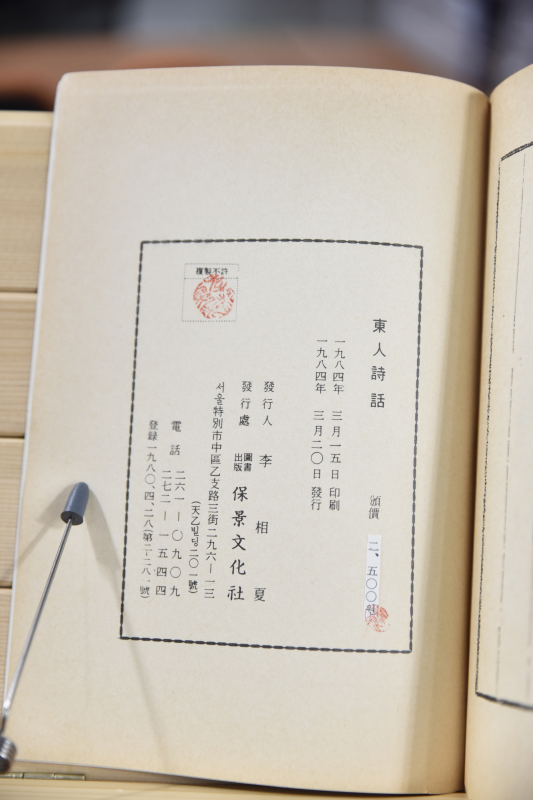 東人詩話
頒價 二、五〇〇원
一九八四年 三月一五日 印刷
一九八四年 三月二〇日 發行
發行人 李相夏
發行處 圖書出版 保景文化社
서울特別市中區乙支路三街二九六－一三
(天乙빌딩二〇一號)
電話 二六一－〇九〇九
二七二－一五四四
登錄一九八〇、四、二八(第二－二八一號)
複製不許